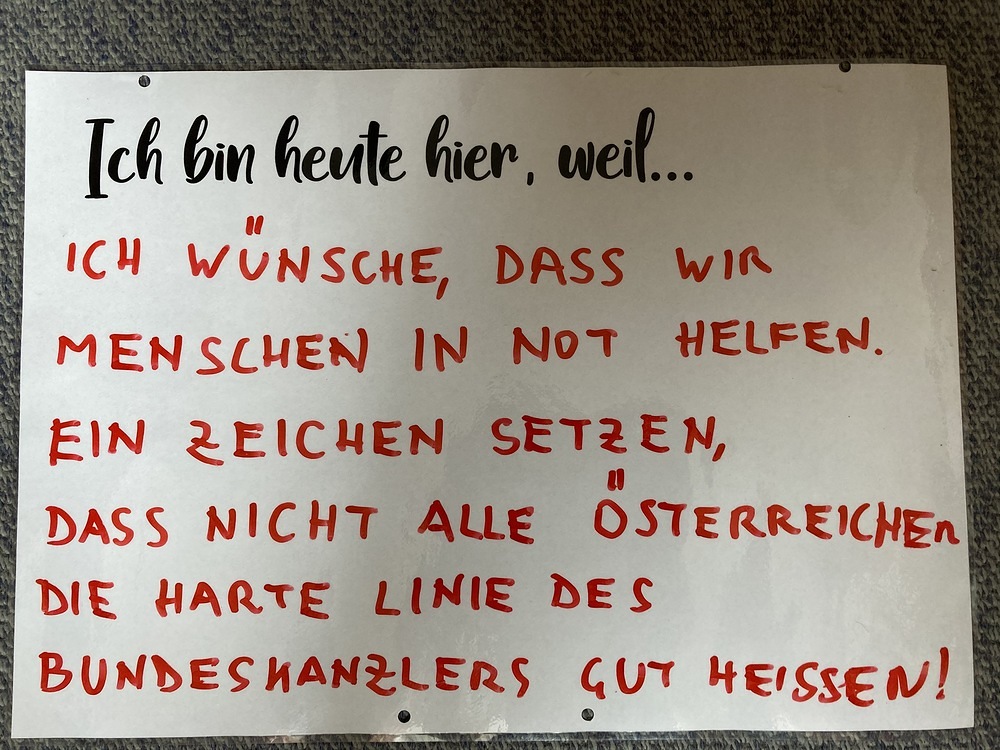 Ich bin heute hier, weil...
ICH WÜNSCHE, DASS WIR
MENSCHEN IN NOT HELFEN.
EIN ZEICHEN SETZEN,
DASS NICHT ALLE ÖSTERREICHEn
DIE HARTE LINIE DES
BUNDESKANZLERS GUT HEISSEN!